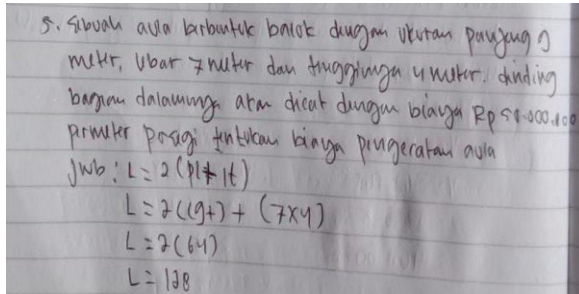 5. Sebuah aula berbentuk balok dengan ukuran panjang 9
meter, lebar 7 meter dan tingginya 4 meter. dinding
bagian dalamnya akan dicat dengan biaya Rp 50.000.00
permeter persegi tentukan biaya pengecatan aula
Jwb : L = 2 (pt + lt)
L = 2 ((9+) + (7x4)
L = 2 (64)
L = 128